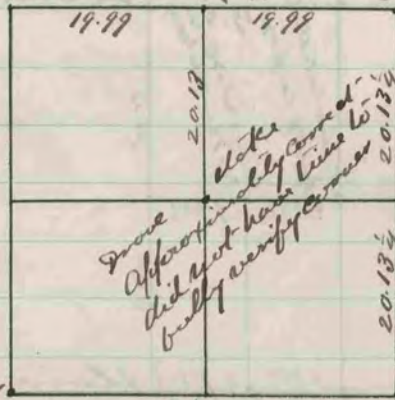 19.99 19.99
20.13
20.13½
Drove stake
approximately correct -
did not have time to
fully verify corner
20.13½